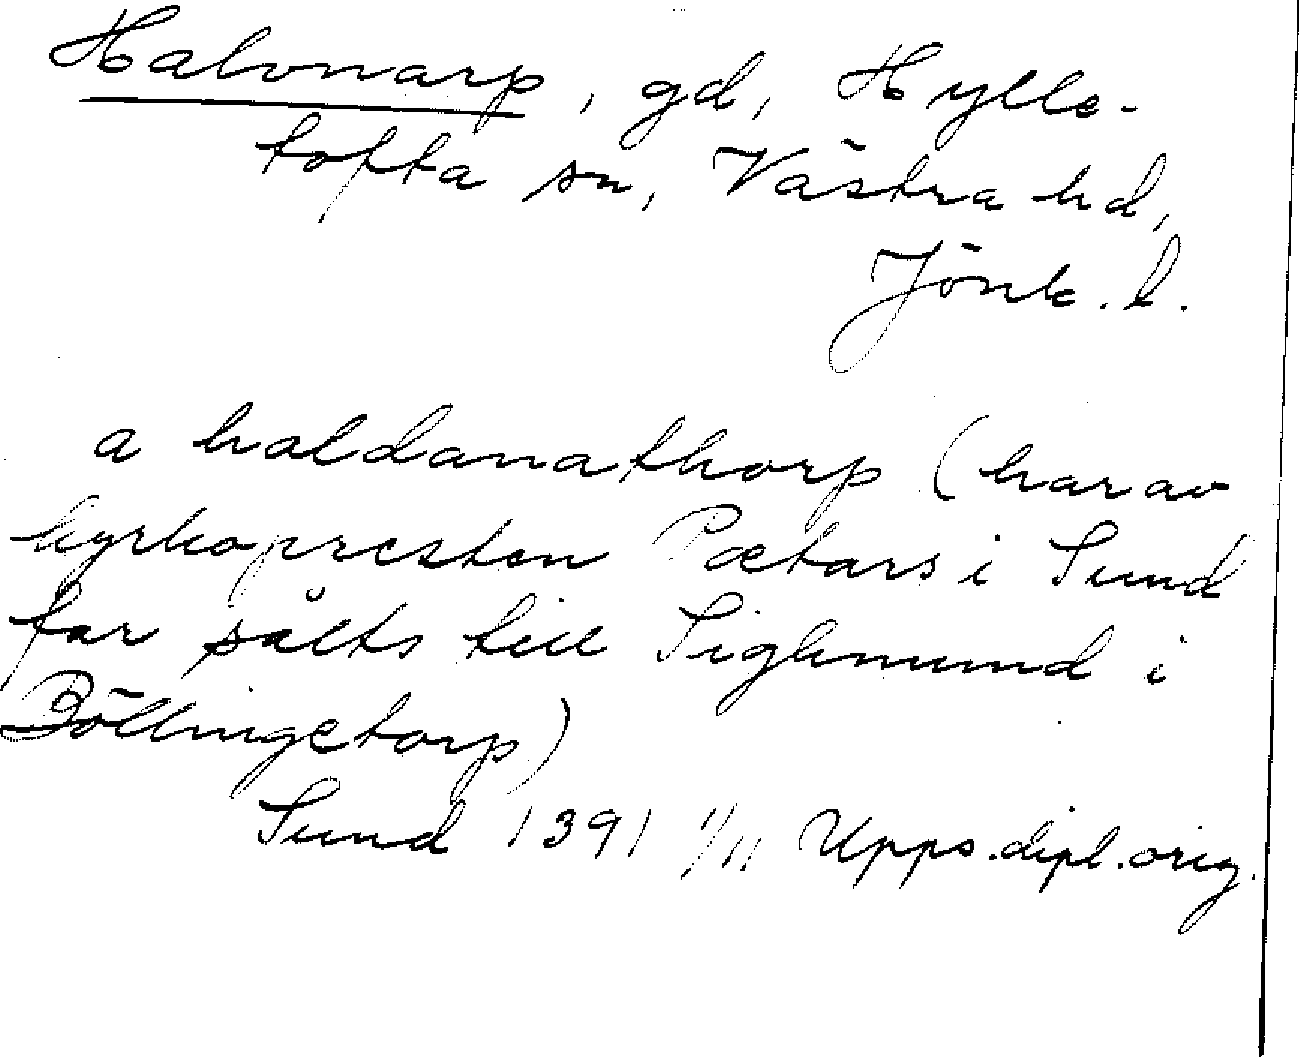 Halvnarp, gd, Hylle-
tofta sn, Västra hd,
Jönk. l.
a haldanathorp (har av
kyrkopresten Pætars i Sund
far sålts till Sighmund i
Böllingetorp)
Sund 1391 1/11 Upps. dipl. orig.